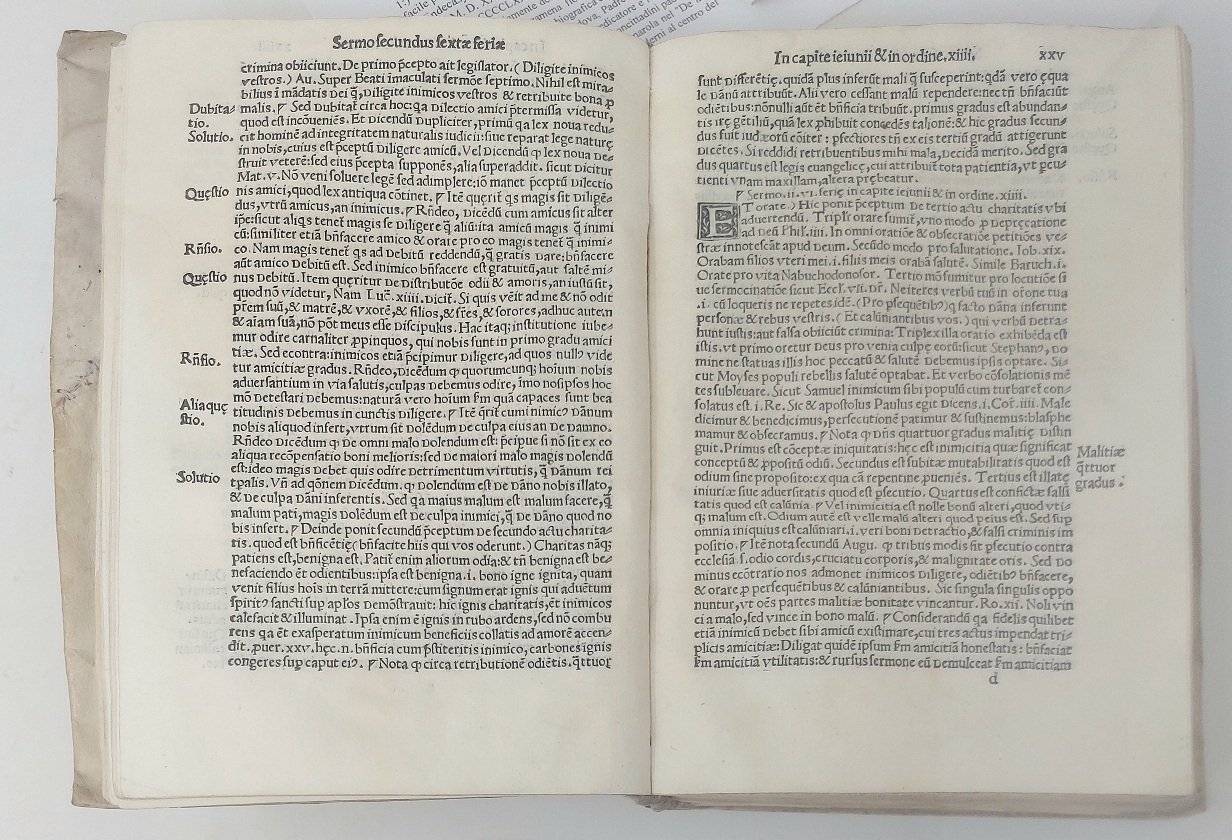 Sermo secundus sextæ feriæ
crimina obiiciunt. De primo p̄cepto ait legislator. (Diligite inimicos
vestros.) Au. Super Beati imaculati sermōe septimo. Nihil est mira⸗
bilius ī mādatis Dei q̄, diligite inimicos vestros & retribuite bona ꝓ
Dubita⸗
tio.
malis. ⁋ Sed Dubitat̄ circa hoc: qa Dilectio amici p̄termissa videtur,
quod est incōueniēs. Et Dicendū Dupliciter, primū qa lex noua redu⸗
Solutio.
cit hominē ad integritatem naturalis iudicii: siue reparat lege naturę
in nobis, cuius est p̄ceptū Diligere amicū. Vel Dicendū ꝙ lex noua De⸗
struit veterē: sed eius p̄cepta supponēs, alia superaddit. sicut dicitur
Mat. v. Nō veni soluere legē sed adimplere: iō manet p̄ceptū Dilectio
Quęstio
nis amici, quod lex antiqua cōtinet. ⁋ Itē quęrit̄ qs magis sit Diligē⸗
dus, vtrū amicus, an inimicus. ⁋ Rn̄deo, Dicēdū cum amicus sit alter
ipē: sicut aliqs tenet̄ magis se Diligere q̄ aliū: ita amicū magis q̄ inimi
cū: similiter etiā bn̄facere amico & orare pro eo magis tenet̄ q̄ inimi⸗
Rn̄sio.
co. Nam magis tenet̄ qs ad Debitū reddendū, q̄ gratis Dare: bn̄facere
aūt amico Debitū est. Sed inimico bn̄facere est gratuitū, aut saltē mi⸗
Quęstio
nus Debitū. Item quęritur De Distributōe odii & amoris, an iustū sit,
quod nō videtur, Nam Luc̄. xiiii. Dicit̄. Si quis veīt ad me & nō odit
pr̄em suū, & matrē, & vxorē, & filios, & fr̄es, & sorores, adhuc autem
& aīam suā, nō pōt meus esse Discipulus. Hac itaqꝫ institutione iube⸗
mur odire carnaliter ꝓpinquos, qui nobis sunt in primo gradu amici
Rn̄sio.
tiæ. Sed econtra: inimicos etiā p̄cipimur Diligere, ad quos nullꝰ vide
tur amicitiæ gradus. Rn̄deo, Dicēdum ꝙ quorumcunqꝫ hoium nobis
aduersantium in via salutis, culpas Debemus odire, īmo nosipsos hoc
mō Detestari Debemus: naturā vero hoīum fm quā capaces sunt bea
Alia quę
stio.
titudinis Debemus in cunctis Diligere. ⁋ Itē q̄rit̄ cum inimicꝰ Dānum
nobis aliquod infert, vtrum sit Dolēdum De culpa eius an De Damno.
Rn̄deo Dicēdum ꝙ De omni malo Dolendum est: p̄cipue si nō sit ex eo
aliqua recōpensatio boni melioris: sed De maiori malo magis Dolendū
Solutio
est: ideo magis Debet quis odire Detrimentum virtutis, q̄ Dānum rei
tpalis. Vn̄ ad qōnem Dicēdum. ꝙ Dolendum est De Dāno nobis illato,
& De culpa Dāni inferentis. Sed qa maius malum est malum facere, q̄
malum pati, magis Dolēdum est De culpa inimici, q̄ De Dāno quod no
bis insert. ⁋ Deinde ponit secundū p̄ceptum De secundo actu charita⸗
tis. quod est bn̄ficētię (bn̄facite hiis qui vos oderunt.) Charitas nāqꝫ
patiens est, benigna est. Patit̄ enim aliorum odia: & tn̄ benigna est be⸗
nefaciendo ēt odientibus: ipsa est benigna. i. bono igne ignita, quam
venit filius hoīs in terrā mittere: cum signum erat ignis qui aduētum
spiritꝰ sancti sup apl̄os Demōstrauit: hic ignis charitatis, ēt inimicos
calefacit & illuminat. Ipsa enim ē ignis in rubo ardens, sed nō combu
rens qa ēt exasperatum inimicum beneficiis collatis ad amorē accen⸗
dit. ꝓuer. xxv. hęc. n. bn̄ficia cum p̄stiteritis inimico, carbones ignis
congeres suꝑ caput eiꝰ. ⁋ Nota ꝙ circa retributionē odiētis. q̄ttuor
In capite ieiunii & in ordine. xiiii. xxv
sunt Differētię. quidā plus inferūt mali q̄ susceperint: qdā vero ęqua
le Dānū attribuūt. Alii vero cessant malū rependere: nec tn̄ bn̄faciūt
odiētibus: nōnulli aūt ēt bn̄ficia tribuūt. primus gradus est abundan⸗
tis irę gētiliū, quā lex ꝓhibuit concedēs talionē: & hic gradus secun⸗
dus fuit iudæorū cōiter: pfectiores tn̄ ex eis tertiū gradū attigerunt
Dicētes. Si reddidi retribuentibus mihi mala, Decidā merito. Sed gra
dus quartus est legis euangelicę, cui attribuit̄ tota patientia, vt ꝑcu⸗
tienti vnam maxillam, altera prębeatur.
⁋ Sermo. ii. vi. ferię in capite ieiunii & in ordine. xiiii.
ET orate.) Hic ponit p̄ceptum De tertio actu charitatis vbi
aduertendū. Triplr̄ orare sumit̄, vno modo ꝓ Depręcatione
ad deū Phil̄. iiii. In omni oratiōe & obsecratiōe petitiōes ve⸗
stræ innotescāt apud Deum. Secūdo modo pro salutatione. Iob. xix.
Orabam filios vteri mei .i. filiis meis orabā salutē. Simile Baruch. i.
Orate pro vita Nabuchodonosor. Tertio mō sumitur pro locutiōe si
ue sermocinatiōe sicut Eccl̄. vii. Dr̄. Ne iteres verbū tuū in orōne tua
.i. cū loqueris ne repetes idē. (Pro ꝑsequētibꝰ) q facto Dāna inferunt
personæ & rebus vestris. (Et calūniantibus vos.) qui verbū Detra⸗
hunt iustis: aut falsa obiiciūt crimina: Triplex illa oratio exhibēda est
istis. vt primo oretur Deus pro venia culpę eorū: sicut Stephanꝰ, Do
mine ne statuas illis hoc peccatū & salutē Debemus ipsis optare. Si⸗
cut Moyses populi rebellis salutē optabat. Et verbo cōsolationis mē
tes subleuare. Sicut Samuel inimicum sibi populū cum turbaret̄ con⸗
solatus est. i. Re. Sic & apostolus Paulus egit Dicens. i. Cor̄. iiii. Male
dicimur & benedicimus, persecutionē patimur & sustinemus: blasphe
mamur & obsecramus. ⁋ Nota ꝙ Dn̄s quattuor gradus malitię Distin
guit. Primus est cōceptæ iniquitatis: hęc est inimicitia quæ significat
Malitiæ
q̄ttuor
gradus.
conceptū & ꝓpositū odiū. Secundus est subitæ mutabilitatis quod est
odium sine proposito: ex qua cā repentine ꝓueniēs. Tertius est illatę
iniuriæ siue aduersitatis quod est ꝑsecutio. Quartus est confictæ falsi
tatis quod est calūnia. ⁋ Vel inimicitia est nolle bonū alteri, quod vti⸗
qꝫ malum est. Odium autē est velle malū alteri quod peius est. Sed suꝑ
omnia iniquius est calūniari .i. veri boni Detractio, & falsi criminis im
positio. ⁋ Itē nota secundū Augu. ꝙ tribus modis fit ꝑsecutio contra
ecclesiā .s. odio cordis, cruciatu corporis, & malignitate oris. Sed Do
minus ecōtrario nos admonet inimicos Diligere, odiētibꝰ bn̄facere,
& orare ꝓ persequētibus & calūniantibus. Sic singula singulis oppo
nuntur, vt oēs partes malitiæ bonitate vincantur. Ro. xii. Noli vin
ci a malo, sed vince in bono malū. ⁋ Considerandū qa fidelis quilibet
etiā inimicū Debet sibi amicū existimare, cui tres actus impendat tri⸗
plicis amicitiæ: Diligat quidē ipsum fm amicitiā honestatis: bn̄faciat
fm amicitiā vtilitatis: & rursus sermone eū Demulceat fm amicitiam
d